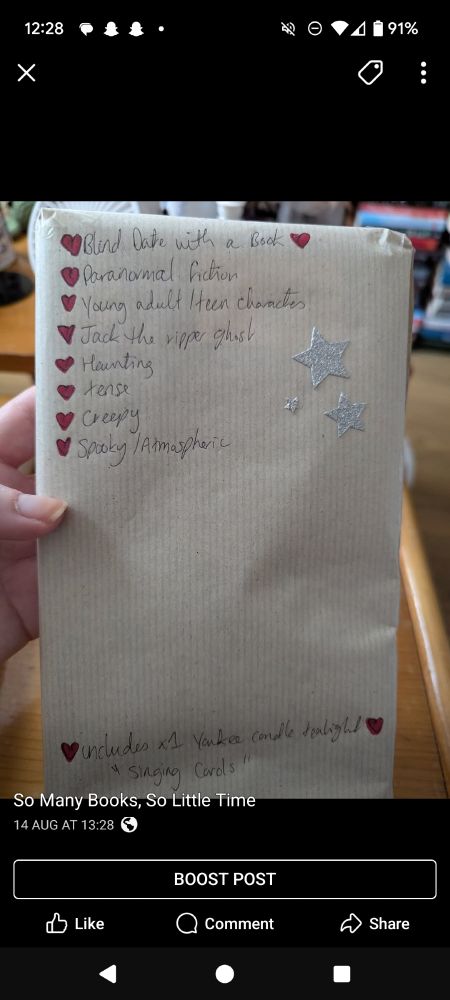 12:28
91%
Blind Date with a Book
Paranormal fiction
Young adult/teen characters
Jack the ripper ghost
Haunting
tense
Creepy
Spooky/Atmospheric
includes x1 Yankee candle tealight
"Singing Carols"
So Many Books, So Little Time
14 AUG AT 13:28
BOOST POST
Like
Comment
Share